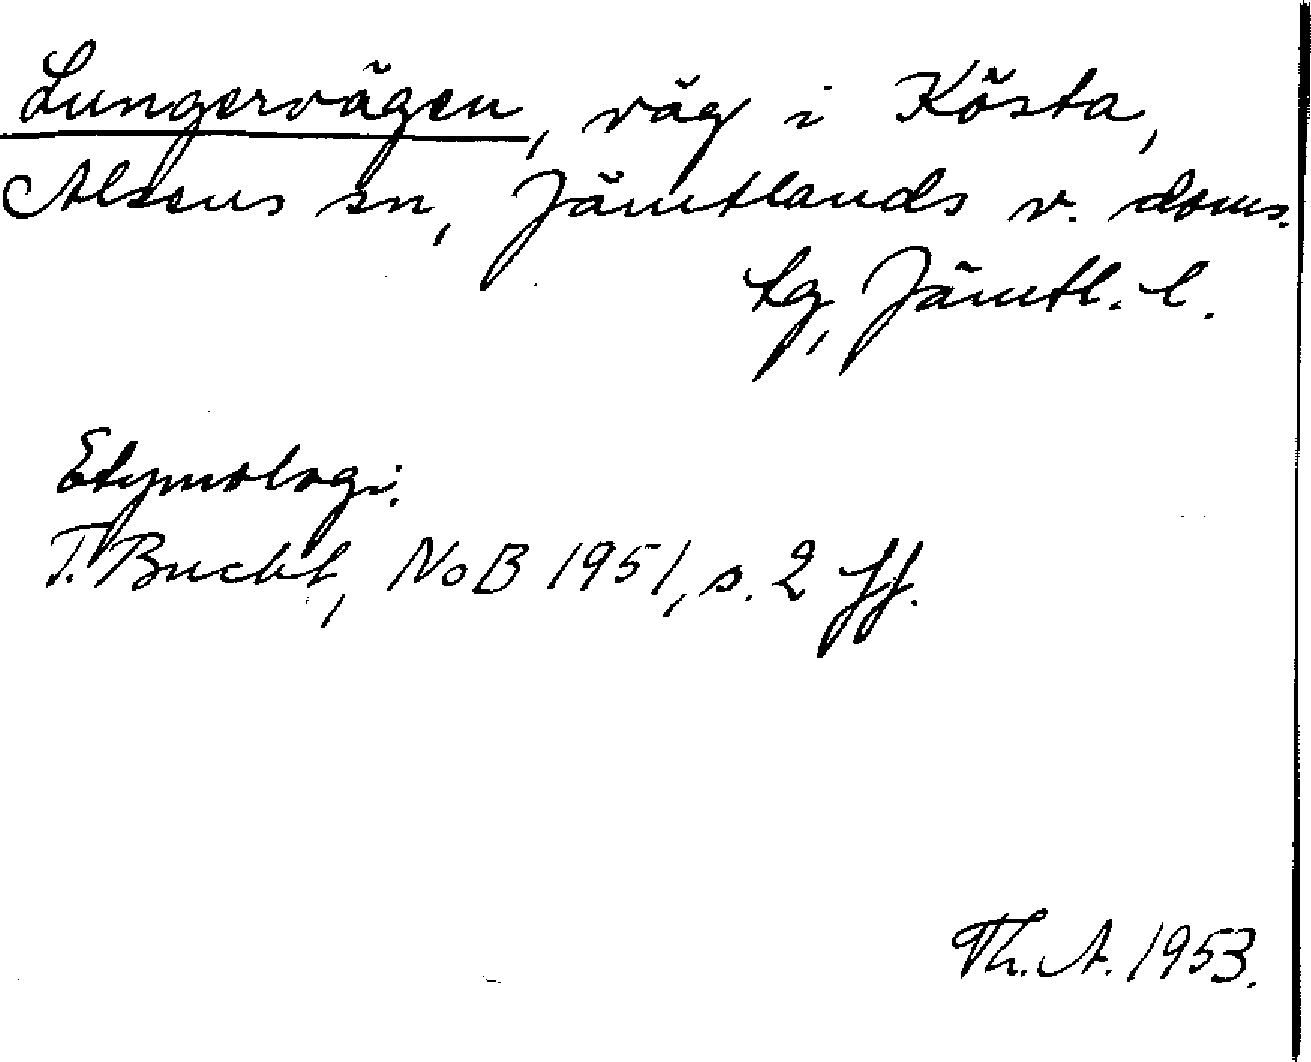 Lungervägen, väg i Kösta,
Alsens sn, Jämtlands v. doms.
tg, Jämtl. l.
Etymologi.
T. Bucht, NoB 1951, s. 2 ff.
Th. A. 1953.